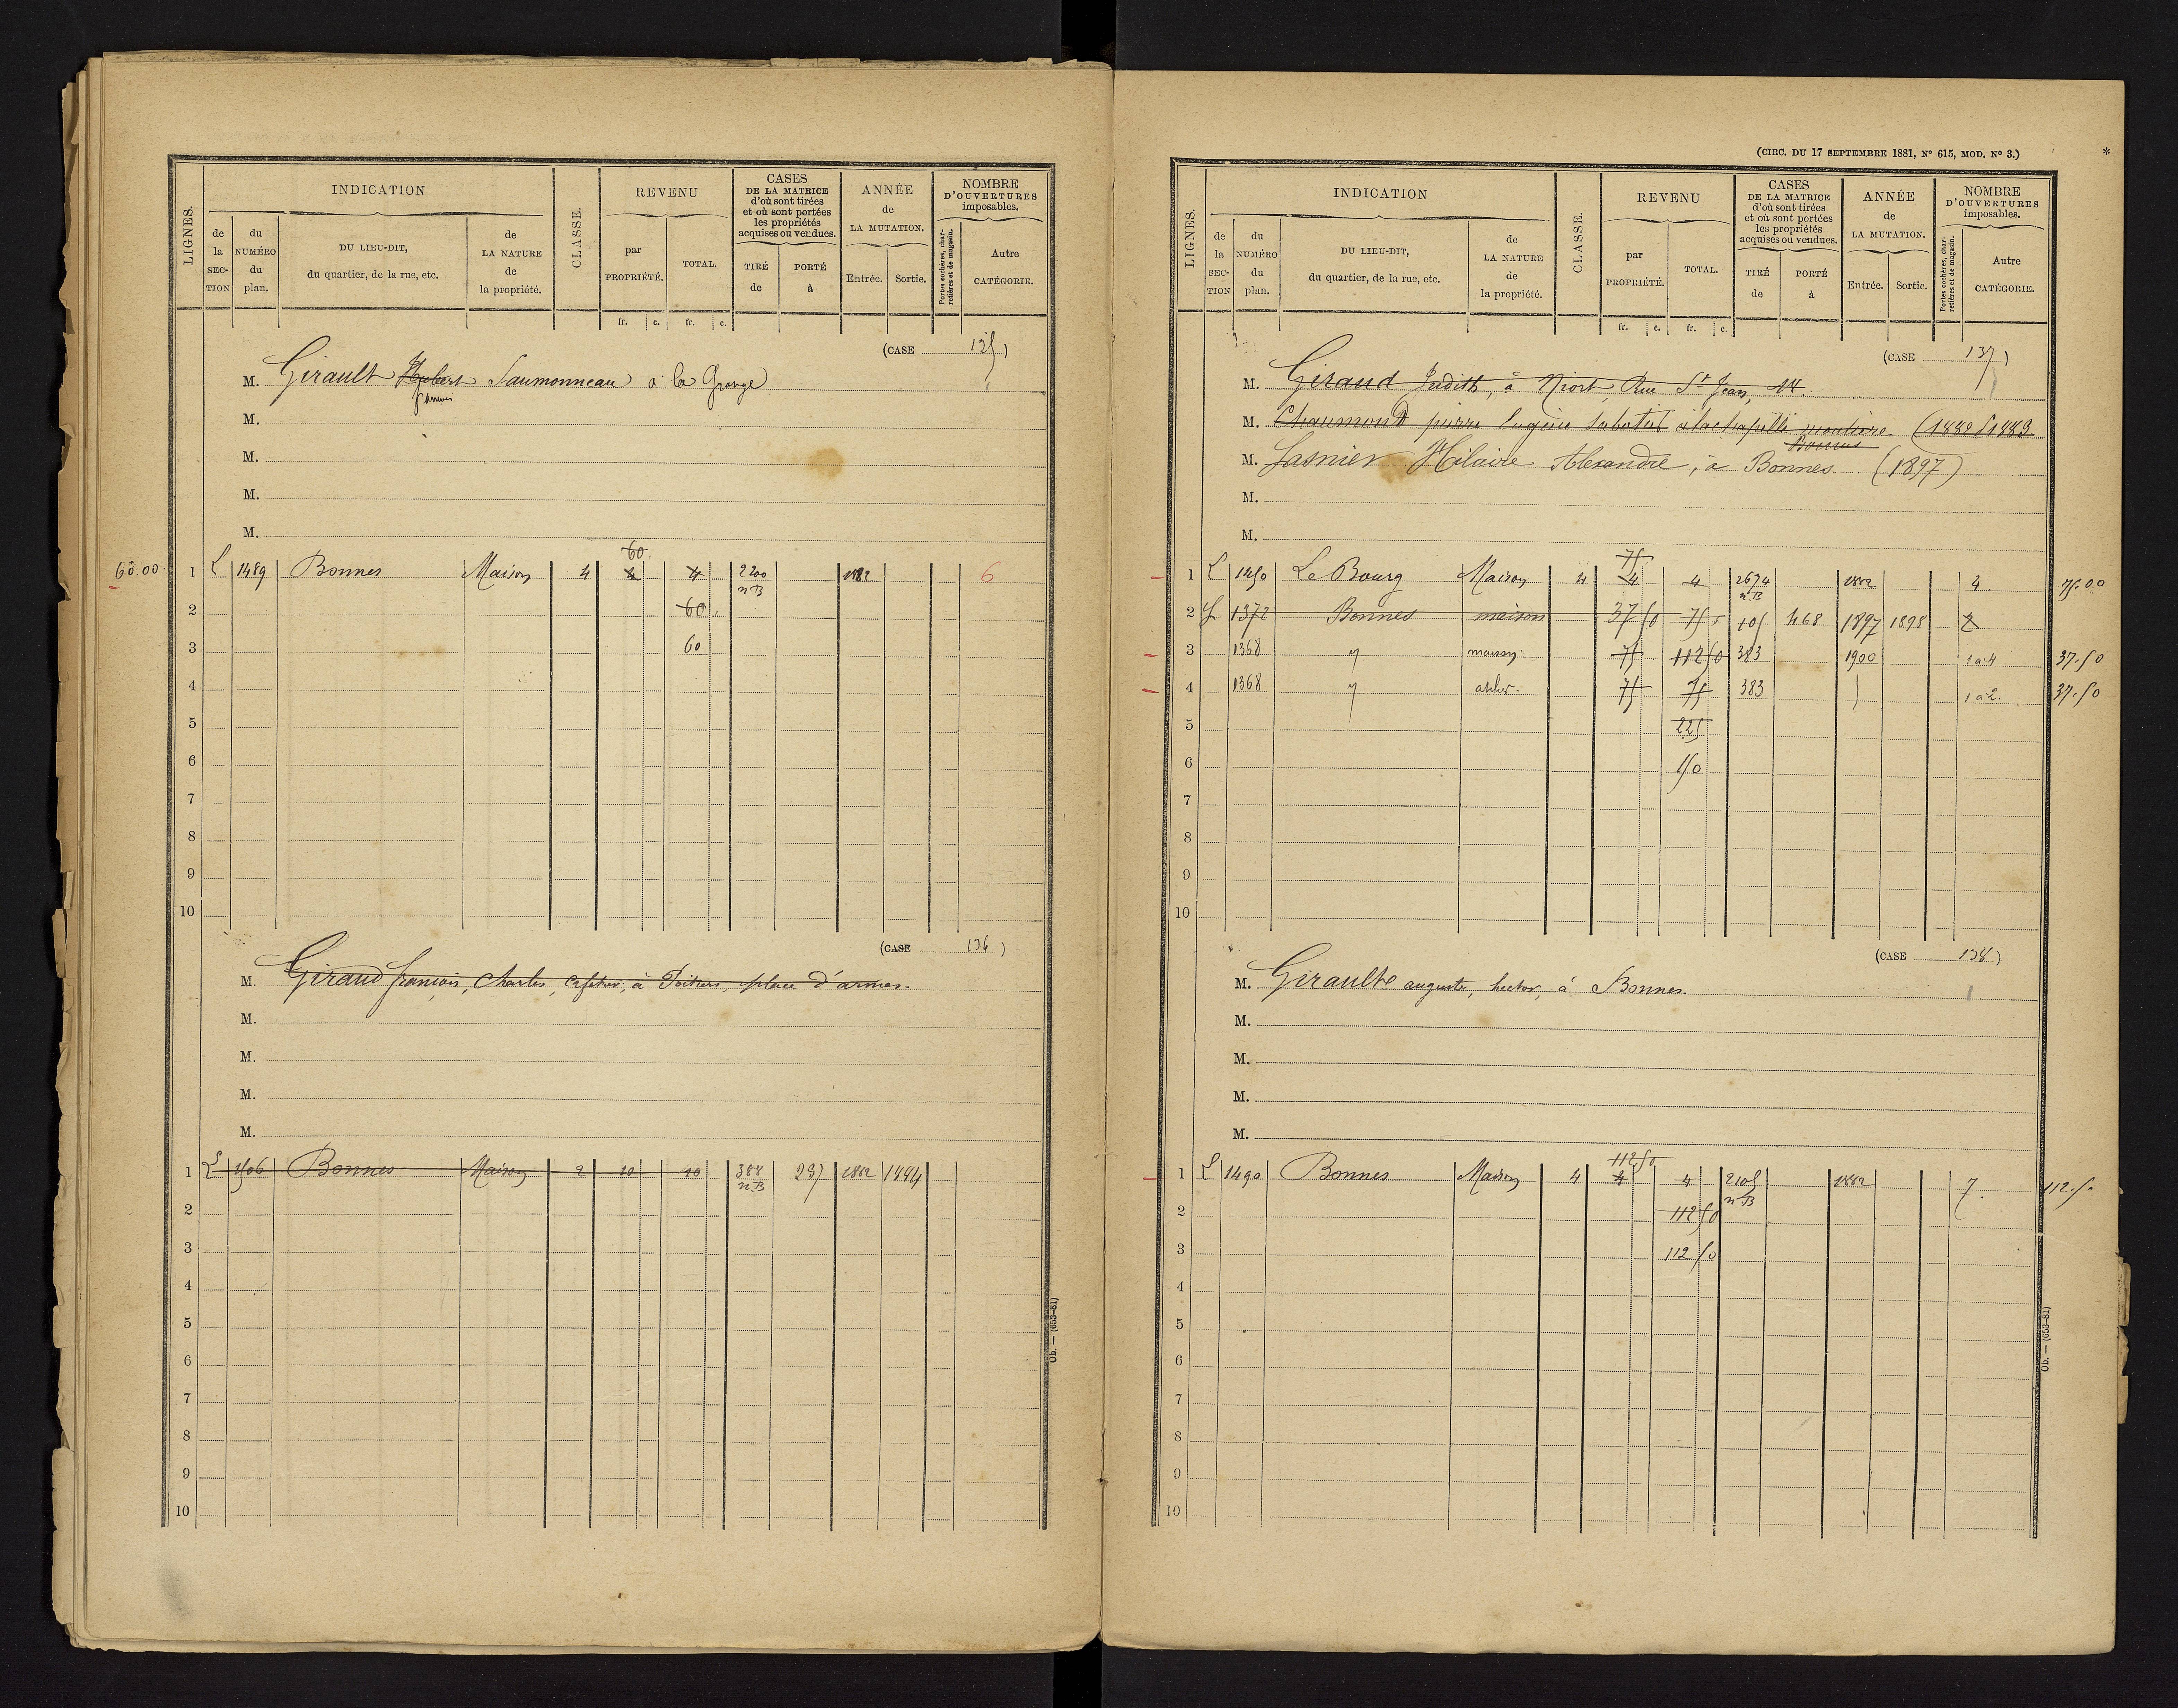 LIGNES.
INDICATION
de la SECTION
du NUMÉRO du plan.
DU LIEU-DIT, du quartier, de la rue, etc.
de LA NATURE de la propriété.
CLASSE.
REVENU
par PROPRIÉTÉ.
TOTAL.
fr. c. fr. c.
CASES DE LA MATRICE d'où sont tirées et où sont portées les propriétés acquises ou vendues.
TIRÉ de
PORTÉ à
ANNÉE de LA MUTATION.
Entrée. Sortie.
NOMBRE D'OUVERTURES imposables.
Portes cochères, charretières et de magasin.
Autre CATÉGORIE.
(CASE 135)
M. Girault Hubert Saumonneau à la Grange
françois
M.
M.
M.
M.
60
60.00 1 L 1489 Bonnes Maison 4 4 4 2200 1882 6
n B
2 60
3 60
4
5
6
7
8
9
10
(CASE 136)
M. Giraud françois, Charles, Cafetier, à Poitiers, place d'armes.
M.
M.
M.
M.
1 L 1506 Bonnes Maison 2 10 10 388 237 1882 1884
n B
2
3
4
5
6
7
8
9
10
Ob. — (653-81)
(CIRC. DU 17 SEPTEMBRE 1881, N° 615, MOD. N° 3.)
*
LIGNES.
INDICATION
de la SECTION
du NUMÉRO du plan.
DU LIEU-DIT, du quartier, de la rue, etc.
de LA NATURE de la propriété.
CLASSE.
REVENU
par PROPRIÉTÉ.
TOTAL.
fr. c. fr. c.
CASES DE LA MATRICE d'où sont tirées et où sont portées les propriétés acquises ou vendues.
TIRÉ de
PORTÉ à
ANNÉE de LA MUTATION.
Entrée. Sortie.
NOMBRE D'OUVERTURES imposables.
Portes cochères, charretières et de magasin.
Autre CATÉGORIE.
(CASE 137)
M. Giraud Judith, à Niort, Rue St Jean, 14.
M. Chaumond pierre Eugène sabotier à lachapelle mouliere (1882 1883
Bonnes
M. Lasnier Hilaire Alexandre, à Bonnes (1897)
M.
M.
75
1 L 1450 Le Bourg Maison 4 4 4 2674 1882 4. 75.00
n B
2 L 1372 Bonnes maison 37 50 75 105 468 1897 1898 2
3 1368 " maison 75 112 50 383 1900 1 à 4 37.50
4 1368 " atelier 75 75 383 1 à 2. 37.50
5 225
6 150
7
8
9
10
(CASE 138)
M. Girault auguste, hector, à Bonnes.
M.
M.
M.
M.
112 50
1 L 1490 Bonnes Maison 4 4 4 2105 1882 7. 112.50
n B
2 112 50
3 112 50
4
5
6
7
8
9
10
Ob. — (653-81)